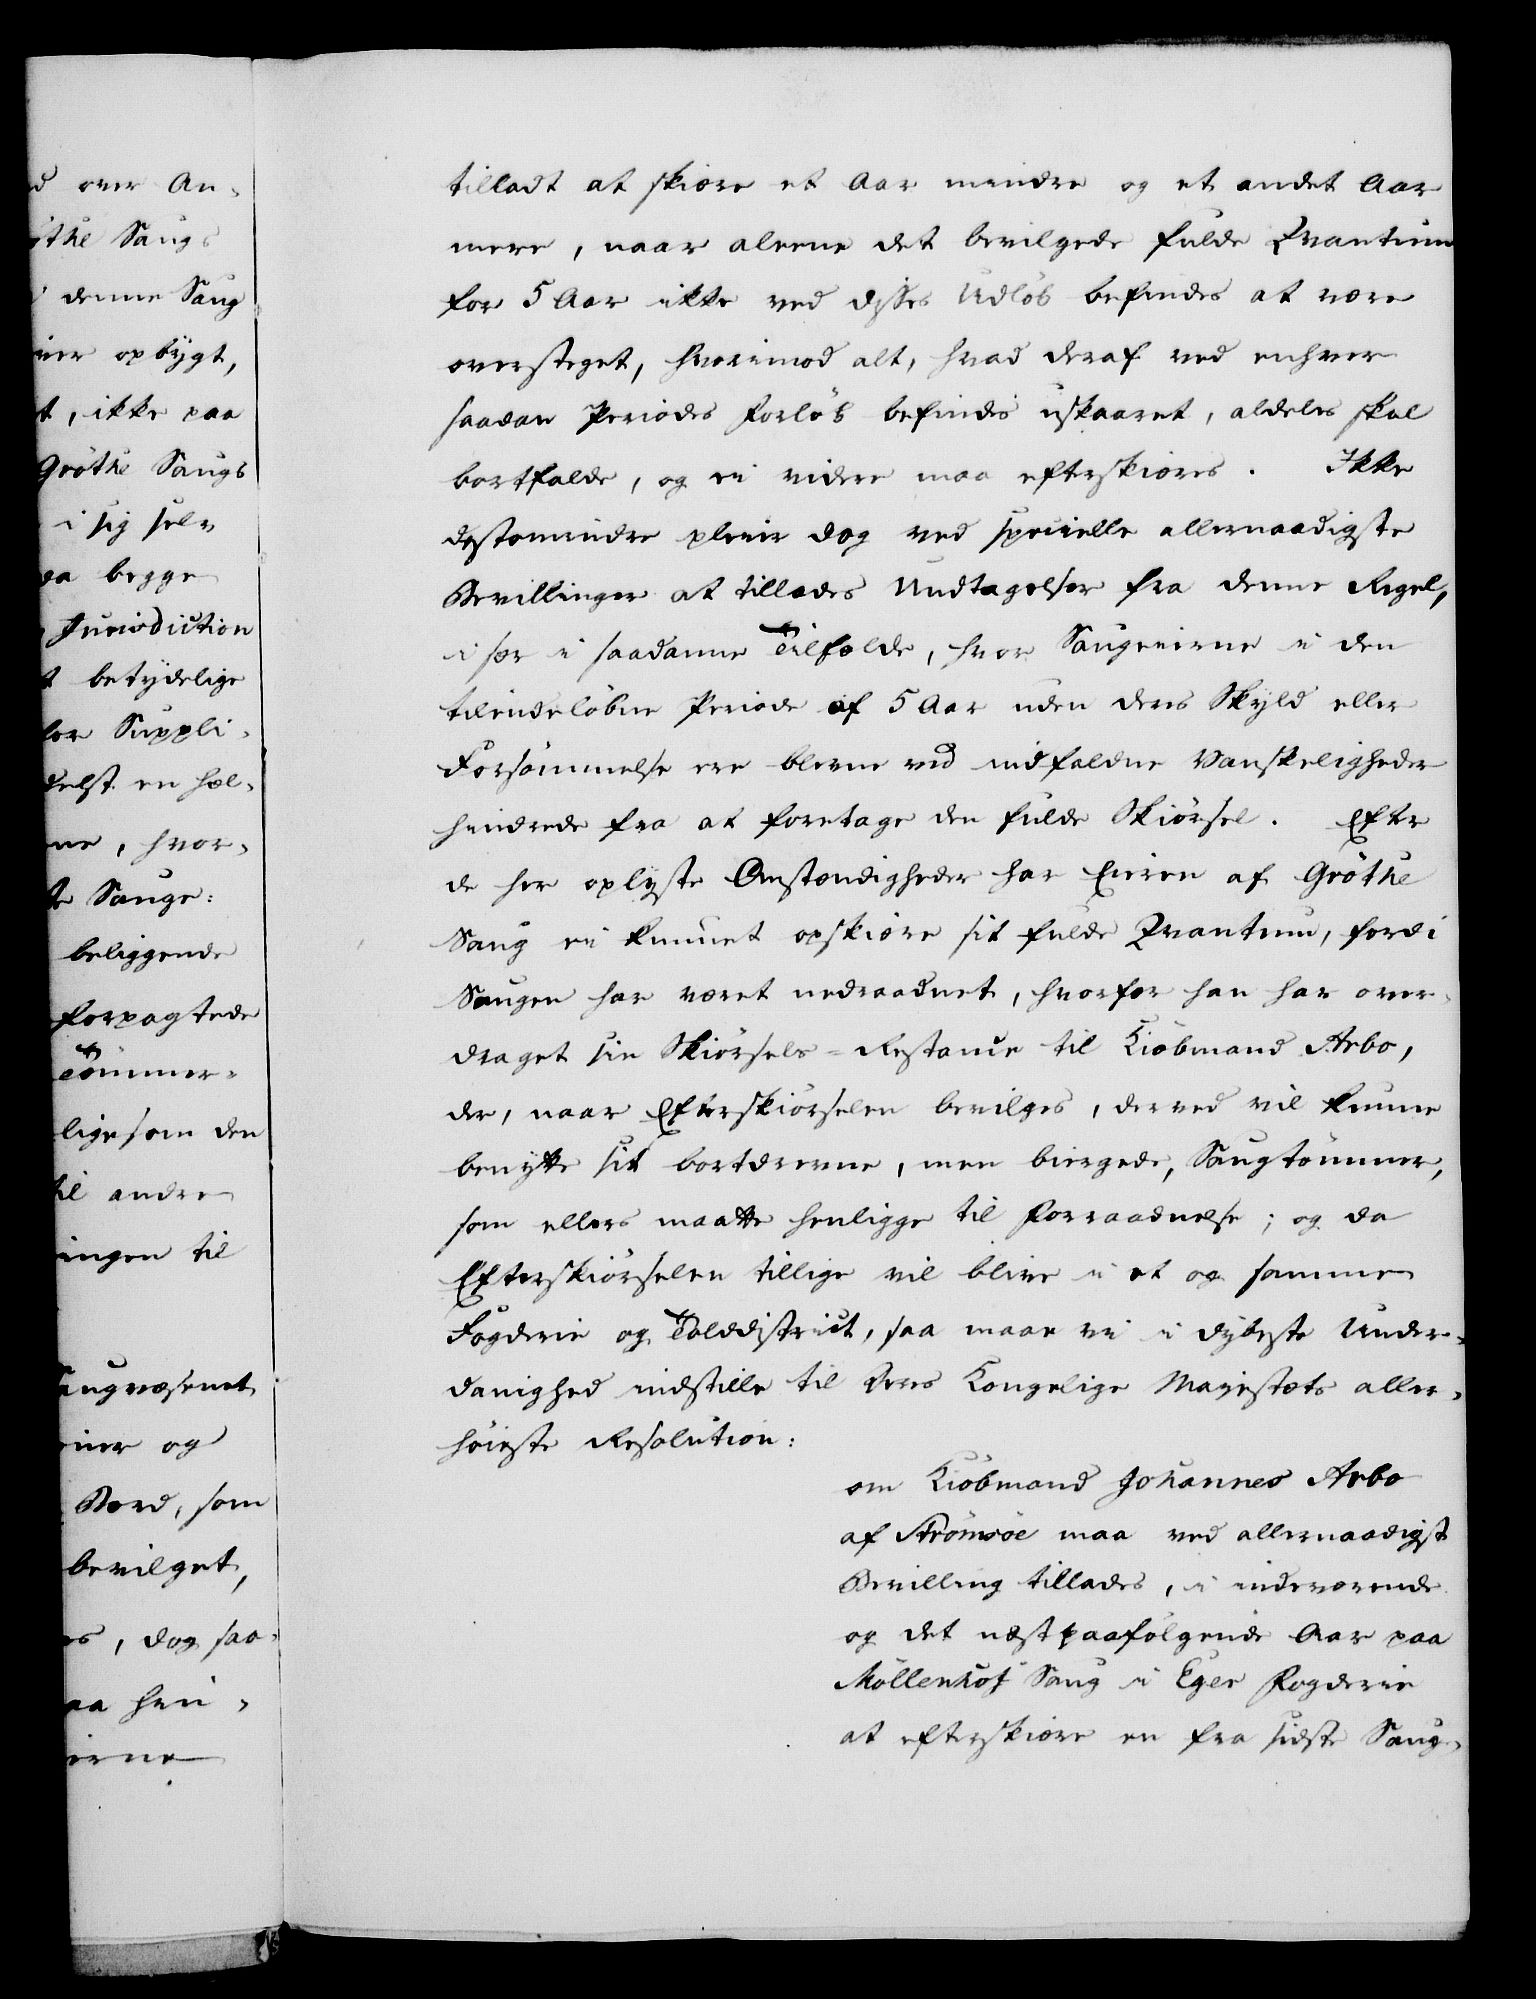 d over An-
øthe Saugs
denne Saug
opbygt,
t, ikke paa
Grøthe Saugs
i sig selv
da begge
Jurisdiction
t betydelige
for Suppli-
delst en hel-
ne, hvor-
te Sauge:
beliggende
forpagtede
Tømmer-
ligesom den
til andre
ingen til
augvæsenet
og
Bord, som
bevilget,
es, dog saa-
aa hen-
erne
tilladt at skiære et Aar mindre og et andet Aar
mere, naar aleene det bevilgede fulde Qvantum
for 5 Aar ikke ved disses Udløb befindes at være
oversteget, hvorimod alt, hvad deraf ved enhver
saadan Periodes Forløb befindes uskaaret, aldeles skal
bortfalde, og ei videre maa efterskiæres. Ikke
destomindre pleier dog ved specielle allernaadigste
Bevillinger at tillades Undtagelser fra denne Regel,
især i saadanne Tilfælde, hvor Saugeierne i den
tilendeløbne Periode af 5 Aar uden deres Skyld eller
Forsømmelse ere blevne ved indfaldne Vanskeligheder
hindrede fra at foretage den fulde Skiørsel. Efter
de her oplyste Omstændigheder har Eieren af Grøthe
Saug ei kunnet opskiære sit fulde Qvantum, fordi
Saugen har været nedraadnet, hvorfor han har over-
draget sin Skiørsels-Restance til Kiøbmand Arbo,
der, naar Efterskiørselen bevilges, derved vil kunne
benytte sit bortdrevne, men biergede, Saugtømmer,
som ellers maatte henligge til Forraadnelse; og da
Efterskiørselen tillige vil blive i et og samme
Fogderie og Tolddistrict, saa maae vi i dybeste Under-
danighed indstille til Deres Kongelige Majestæts aller-
høieste Resolution:
om Kiøbmand Johannes Arbo
af Strømsøe maa ved allernaadigst
Bevilling tillades, i indeværende
og det næstpaafølgende Aar paa
Møllenhof Saug i Eger Fogderie
at efterskiære en fra sidste Saug-